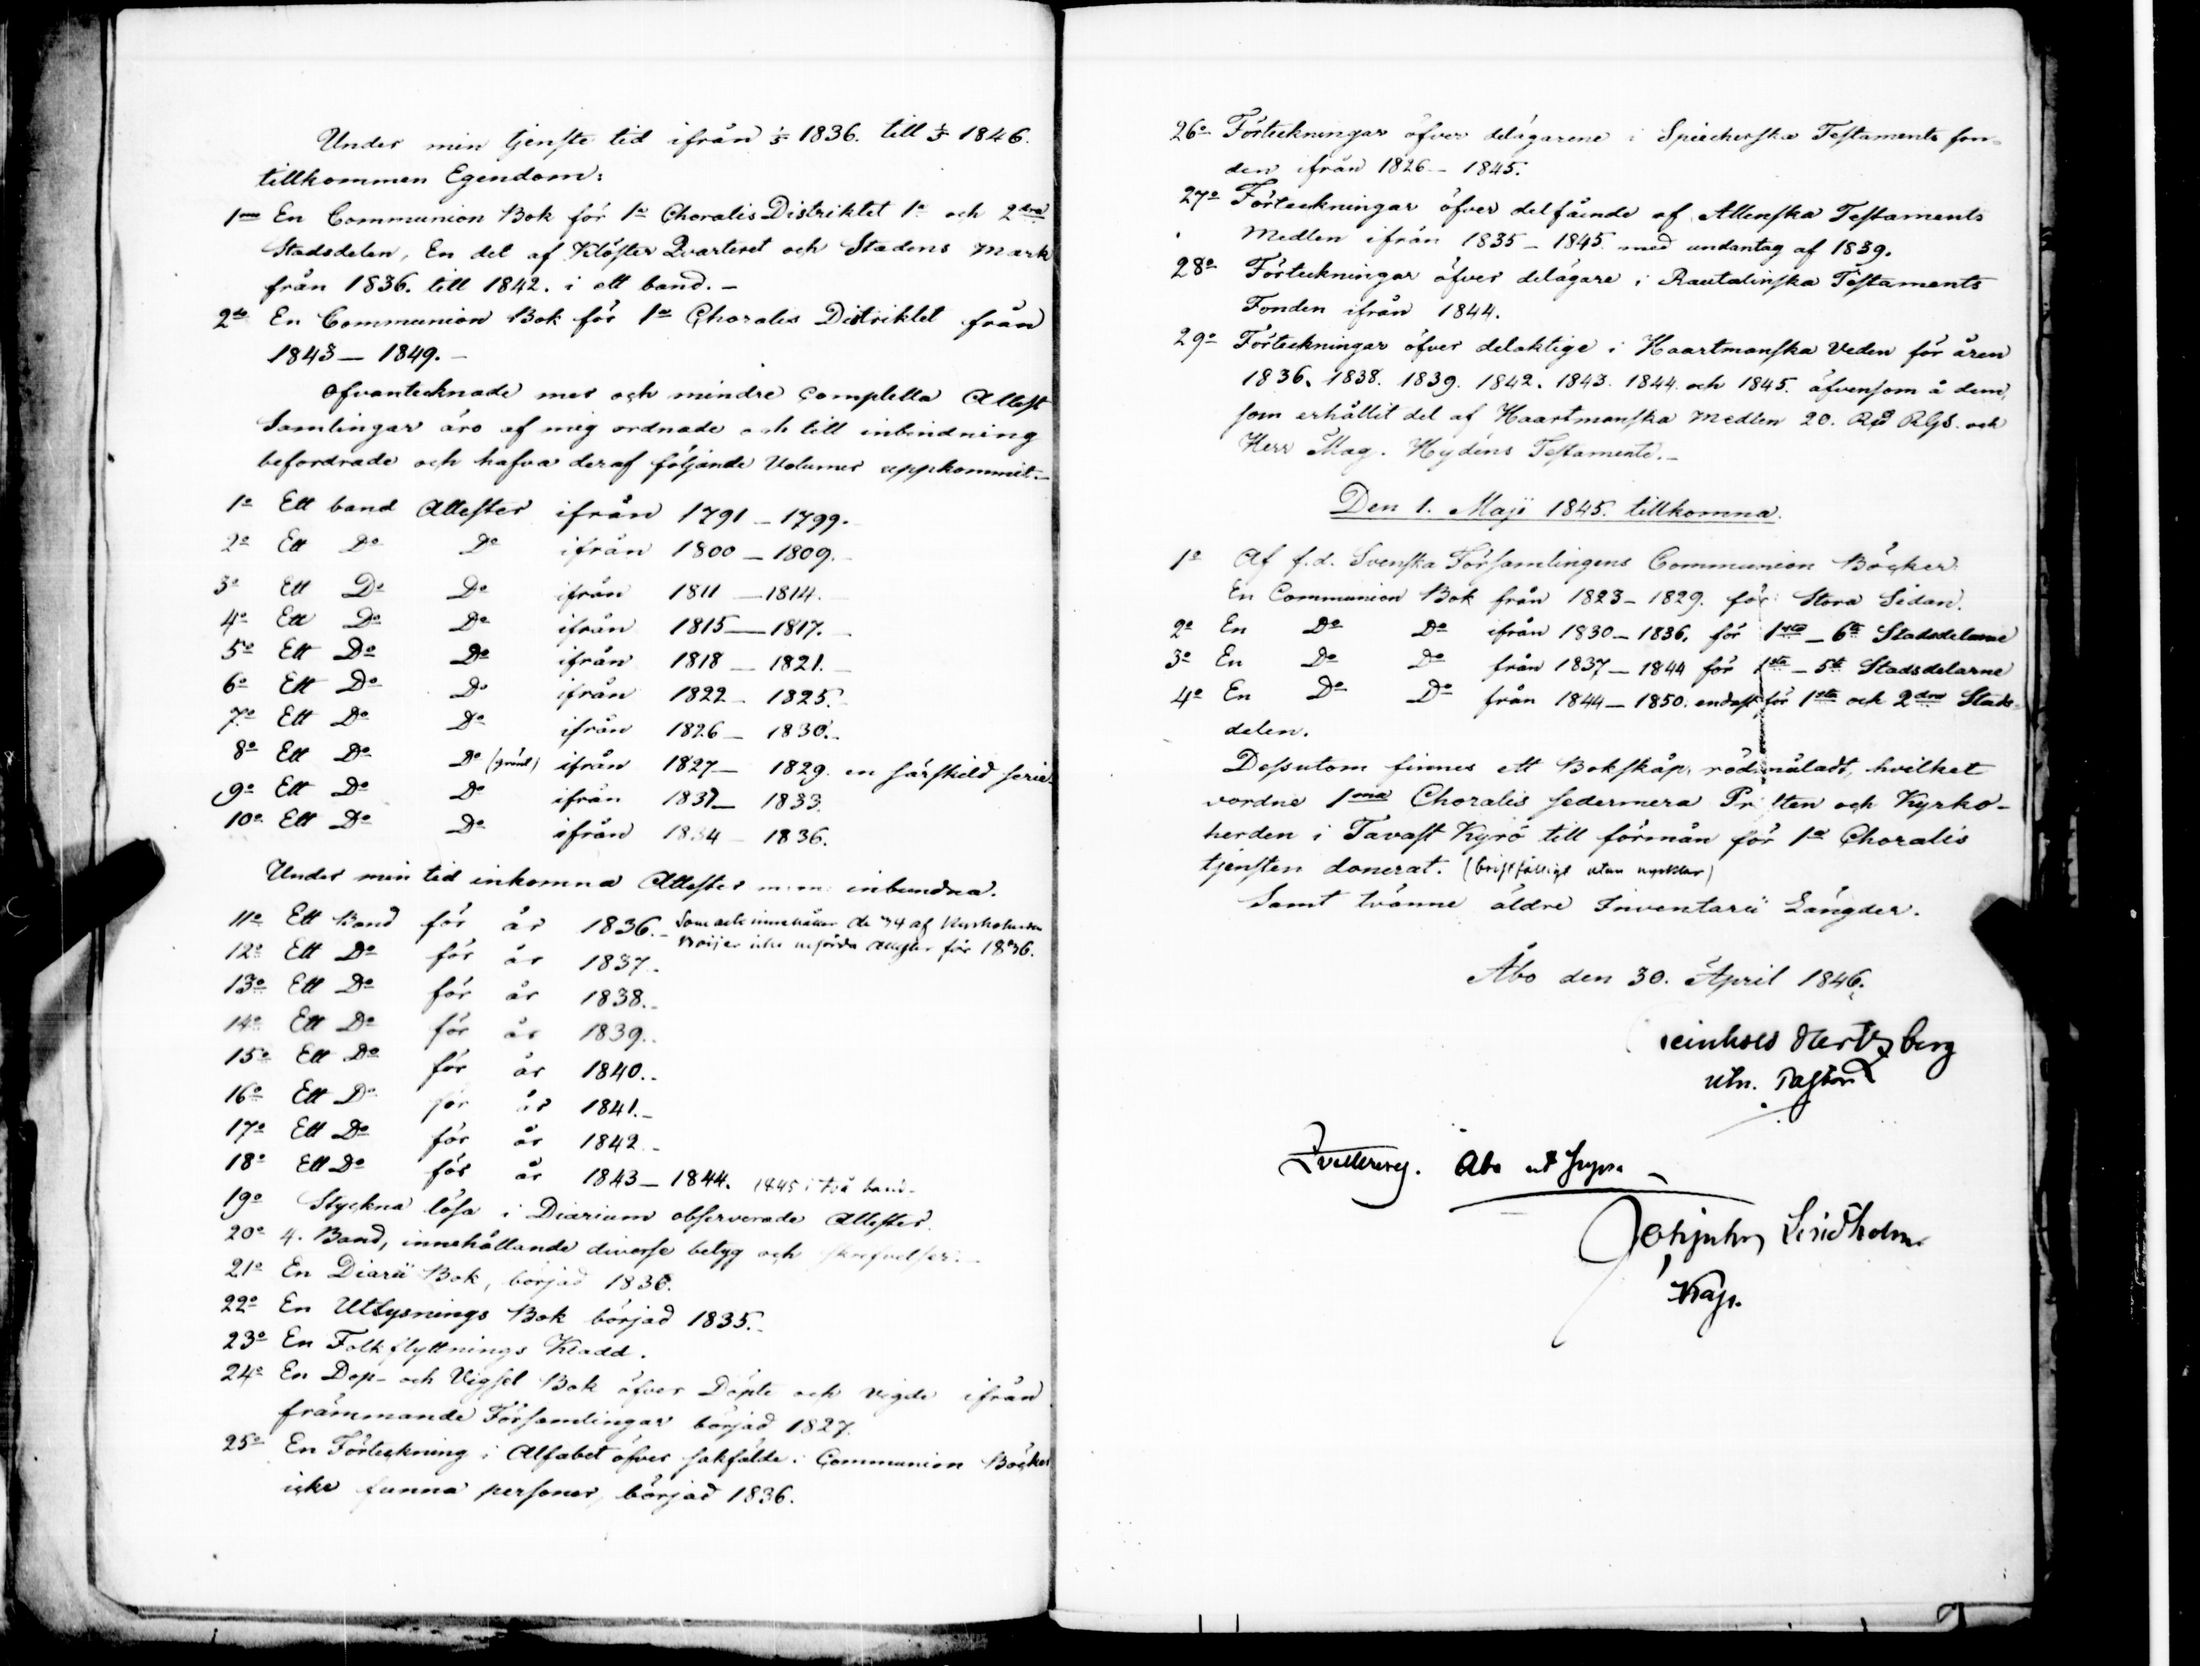 Under min tjenste tid ifrån 1/5 1836. till 1/5 1846.
tillkommen Egendom:
1mo En Communion Bok för 1a Choralis Distriktet 1a och 2dra
Stadsdelen, En del af Klöster Qvarteret och Stadens Mark
från 1836. till 1842. i ett band. –
2do En Communion Bok för 1a Choralis Distriktet från
1843 – 1849. –
Ofvantecknade mer och mindre Completta Attest
Samlingar äro af mig ordnade och till inbindning
befordrade och hafva deraf följande Volumer uppkommit. –
1o Ett band Attester ifrån 1791 – 1799.
2o Ett Do Do ifrån 1800 – 1809. –
3o Ett Do Do ifrån 1811 – 1814. –
4o Ett Do Do ifrån 1815 – 1817. –
5o Ett Do Do ifrån 1818 – 1821. –
6o Ett Do Do ifrån 1822 – 1825. –
7o Ett Do Do ifrån 1826 – 1830. –
8o Ett Do Do ifrån 1827 – 1829. en särskild serie
9o Ett Do Do ifrån 1831 – 1833.
10o Ett Do Do ifrån 1834 – 1836.
Under min tid inkomna Attester m. m. inbundna.
11o Ett Band för år 1836. – Som ack innehåller de 34 af Kyrkoherden
icke införda attester för 1836.
12o Ett Do för år 1837. –
13o Ett Do för år 1838. –
14o Ett Do för år 1839. –
15o Ett Do för år 1840. –
16o Ett Do för år 1841. –
17o Ett Do för år 1842 –
18o Ett Do för år 1843 – 1844. 1845 i två band.
19o Styckna lösa i Diarium observerade Attester.
20o 4. Band, innehållande diverse betyg och skrifvelser. –
21o En Diarii Bok, börjad 1836.
22o En Utlysnings Bok börjad 1835. –
23o En Folkflyttnings Kladd.
24o En Dop- och Vigsel Bok öfver Döpte och vigde ifrån
främmande Församlingar börjad 1827.
25o En Förteckning i Alfabet öfver sakfälde i Communion Böcker
icke funna personer, börjad 1836.
26o Förteckningar öfver delägarene i Spiecherska Testaments fon-
den ifrån 1826 – 1845.
27o Förteckningar öfver delfående af Allenska Testaments
Medlen ifrån 1835 – 1845. med undantag af 1839.
28o Förteckningar öfver delägare i Rautalinska Testaments
Fonden ifrån 1844.
29o Förteckningar öfver delaktige i Haartmanska Veden för åren
1836. 1838. 1839. 1842. 1843. 1844. och 1845. äfvensom å dem,
som erhållit del af Haartmanska Medlen 20. RD RGS. och
Herr Mag. Hydéns Testamente. –
Den 1. Maji 1845. tillkomna.
1o Af f.d. Svenska Församlingens Communion Böcker.
En Communion Bok från 1823 – 1829. för Stora Sidan.
2o En Do Do ifrån 1830 – 1836. för 1sta – 6te Stadsdelarne
3o En Do Do från 1837 – 1844 för 1sta – 5te Stadsdelarne
4o En Do Do från 1844 – 1850. endast för 1sta och 2dra Stads-
delen.
Dessutom finnes ett Bokskåp, rödmåladt, hvilket
vordne 1ma Choralis sedermera Prosten och Kyrko-
herden i Tavast Kyrö till förmån för 1a Choralis
tjensten donerat. (bristfälligt utan nycklar)
Samt tvänne äldre Inventarii Längder.
Åbo den 30. April 1846.
Reinhold Hertzberg
utn. Pastor
Qvitteras. Åbo ut supra
Lindholm
Kap.